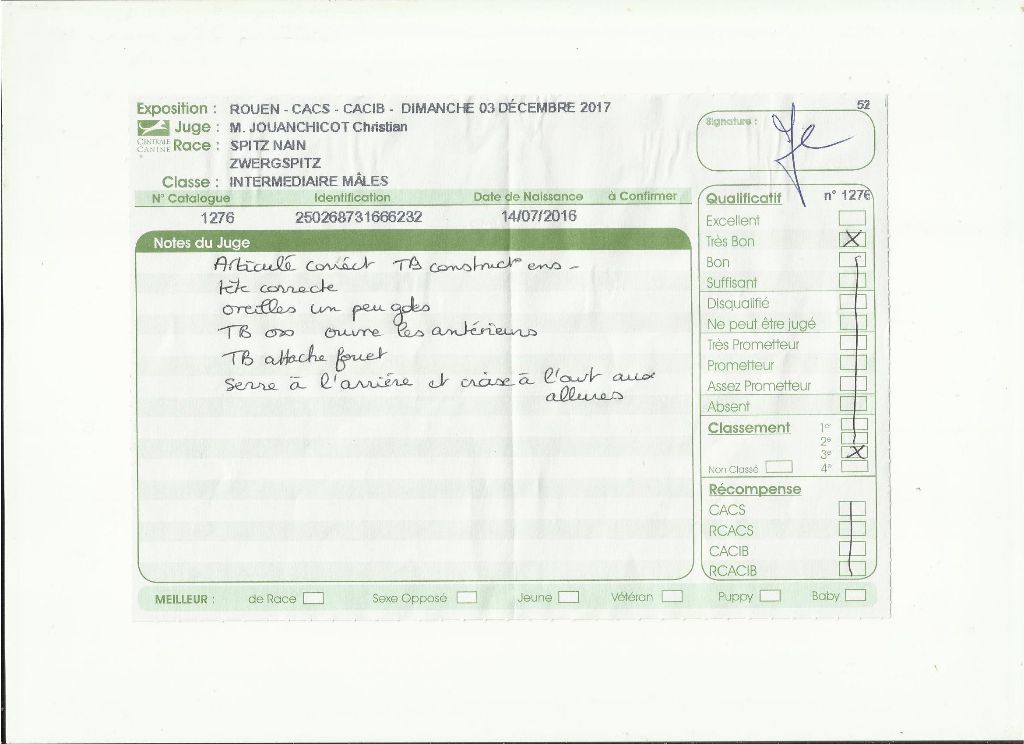 Exposition : ROUEN - CACS - CACIB - DIMANCHE 03 DÉCEMBRE 2017
52
CENTRALE CANINE
Juge : M. JOUANCHICOT Christian
Signature :
Race : SPITZ NAIN
ZWERGSPITZ
Classe : INTERMEDIAIRE MÂLES
N° Catalogue Identification Date de Naissance à Confirmer
1276 250268731666232 14/07/2016
Notes du Juge
Articulé correct TB construct° ens -
tête correcte
oreilles un peu gdes
TB oss ouvre les antérieurs
TB attache fouet
serre à l'arrière et croise à l'avt aux
allures
Qualificatif n° 1276
Excellent
Très Bon X
Bon
Suffisant
Disqualifié
Ne peut être jugé
Très Prometteur
Prometteur
Assez Prometteur
Absent
Classement 1e
2e
3e X
Non Classé 4e
Récompense
CACS
RCACS
CACIB
RCACIB
MEILLEUR : de Race Sexe Opposé Jeune Vétéran Puppy Baby